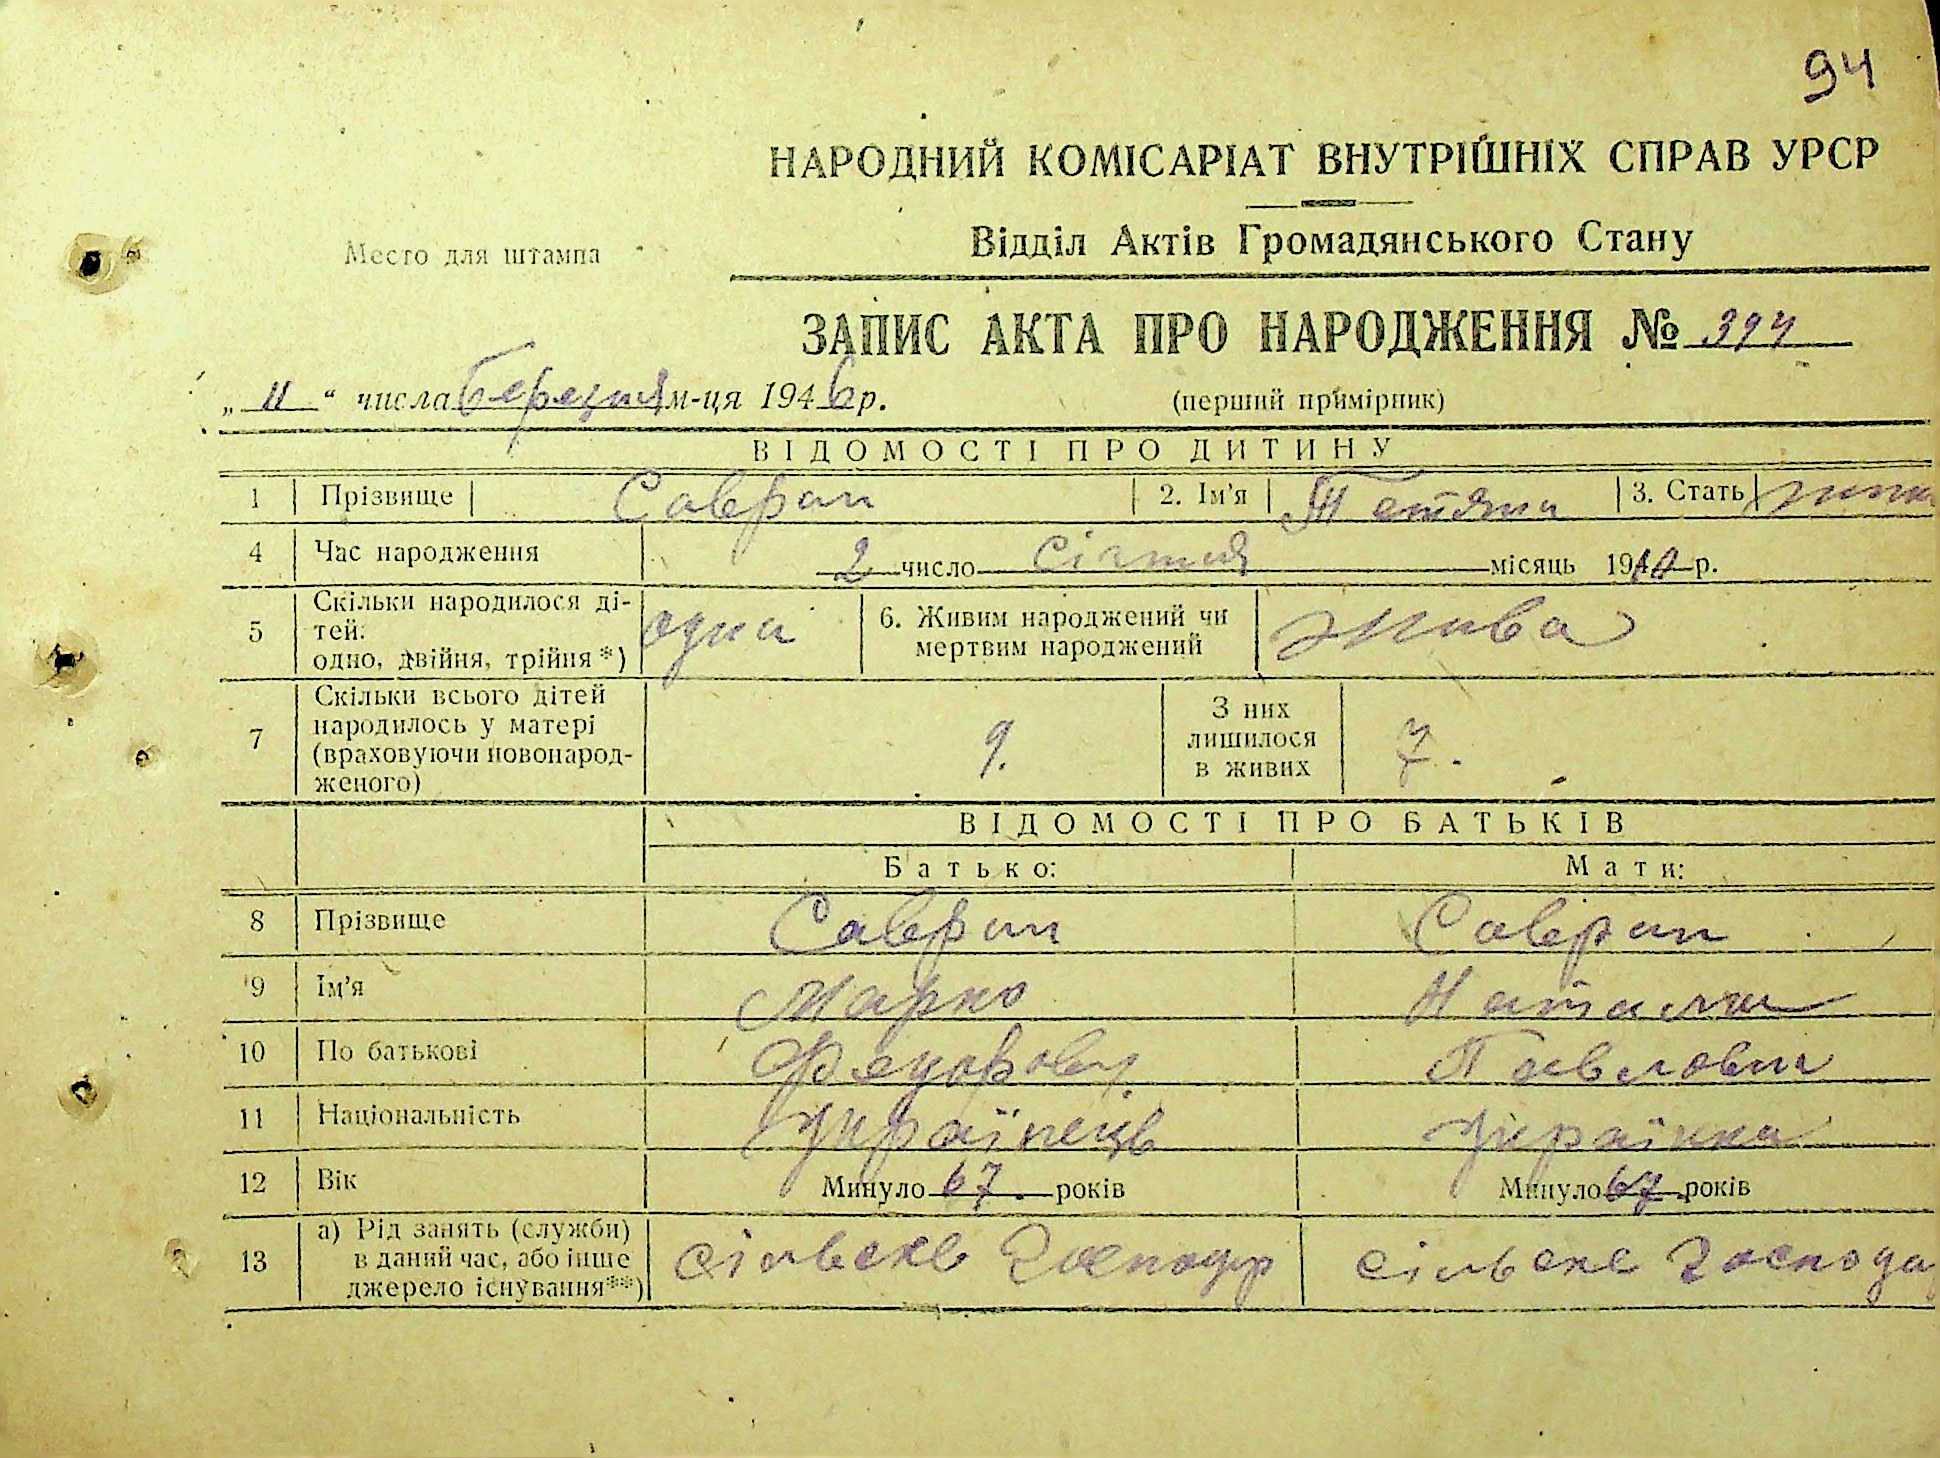 94
НАРОДНИЙ КОМІСАРІАТ ВНУТРІШНІХ СПРАВ УРСР
Место для штампа
Відділ Актів Громадянського Стану
ЗАПИС АКТА ПРО НАРОДЖЕННЯ № 394
„ 11 “ числа березня м-ця 1946 р. (перший примірник)
ВІДОМОСТІ ПРО ДИТИНУ
1 Прізвище Савран 2. Ім'я Тетяна 3. Стать
4 Час народження 2 число січня місяць 19 р.
5 Скільки народилося ді-
тей:
одно, двійня, трійня*) одна 6. Живим народжений чи
мертвим народжений жива
7 Скільки всього дітей
народилось у матері
(враховуючи новонарод-
женого) 9. З них
лишилося
в живих 7.
ВІДОМОСТІ ПРО БАТЬКІВ
Батько: Мати:
8 Прізвище Савран Савран
9 Ім'я Марко Наталия
10 По батькові Федорович Павловна
11 Національність Українець Українка
12 Вік Минуло 67. років Минуло 67 років
13 а) Рід занять (служби)
в даний час, або інше
джерело існування**) сільське господар сільське господа